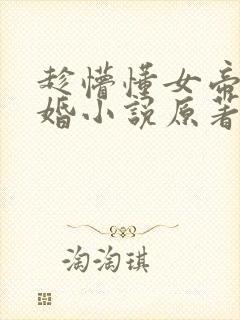 趁懵懂女帝
婚小說原著
淘淘琪